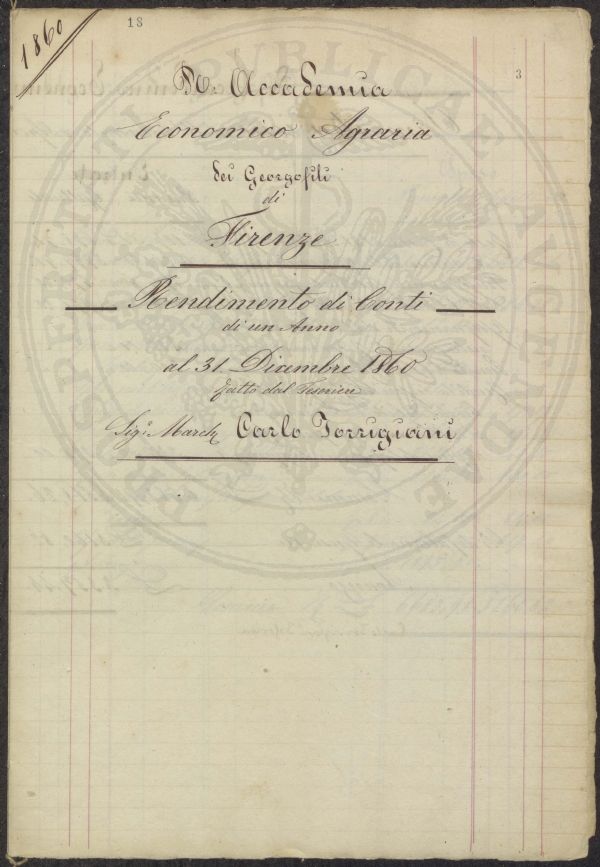 1860
13
3
R. Accademia
Economico Agraria
dei Georgofili
di
Firenze
Rendimento di Conti
di un Anno
al 31 Dicembre 1860
fatto dal Tesoriere
Sigr. March. Carlo Torrigiani
PROSPERITATI PUBLICAE AUGENDAE